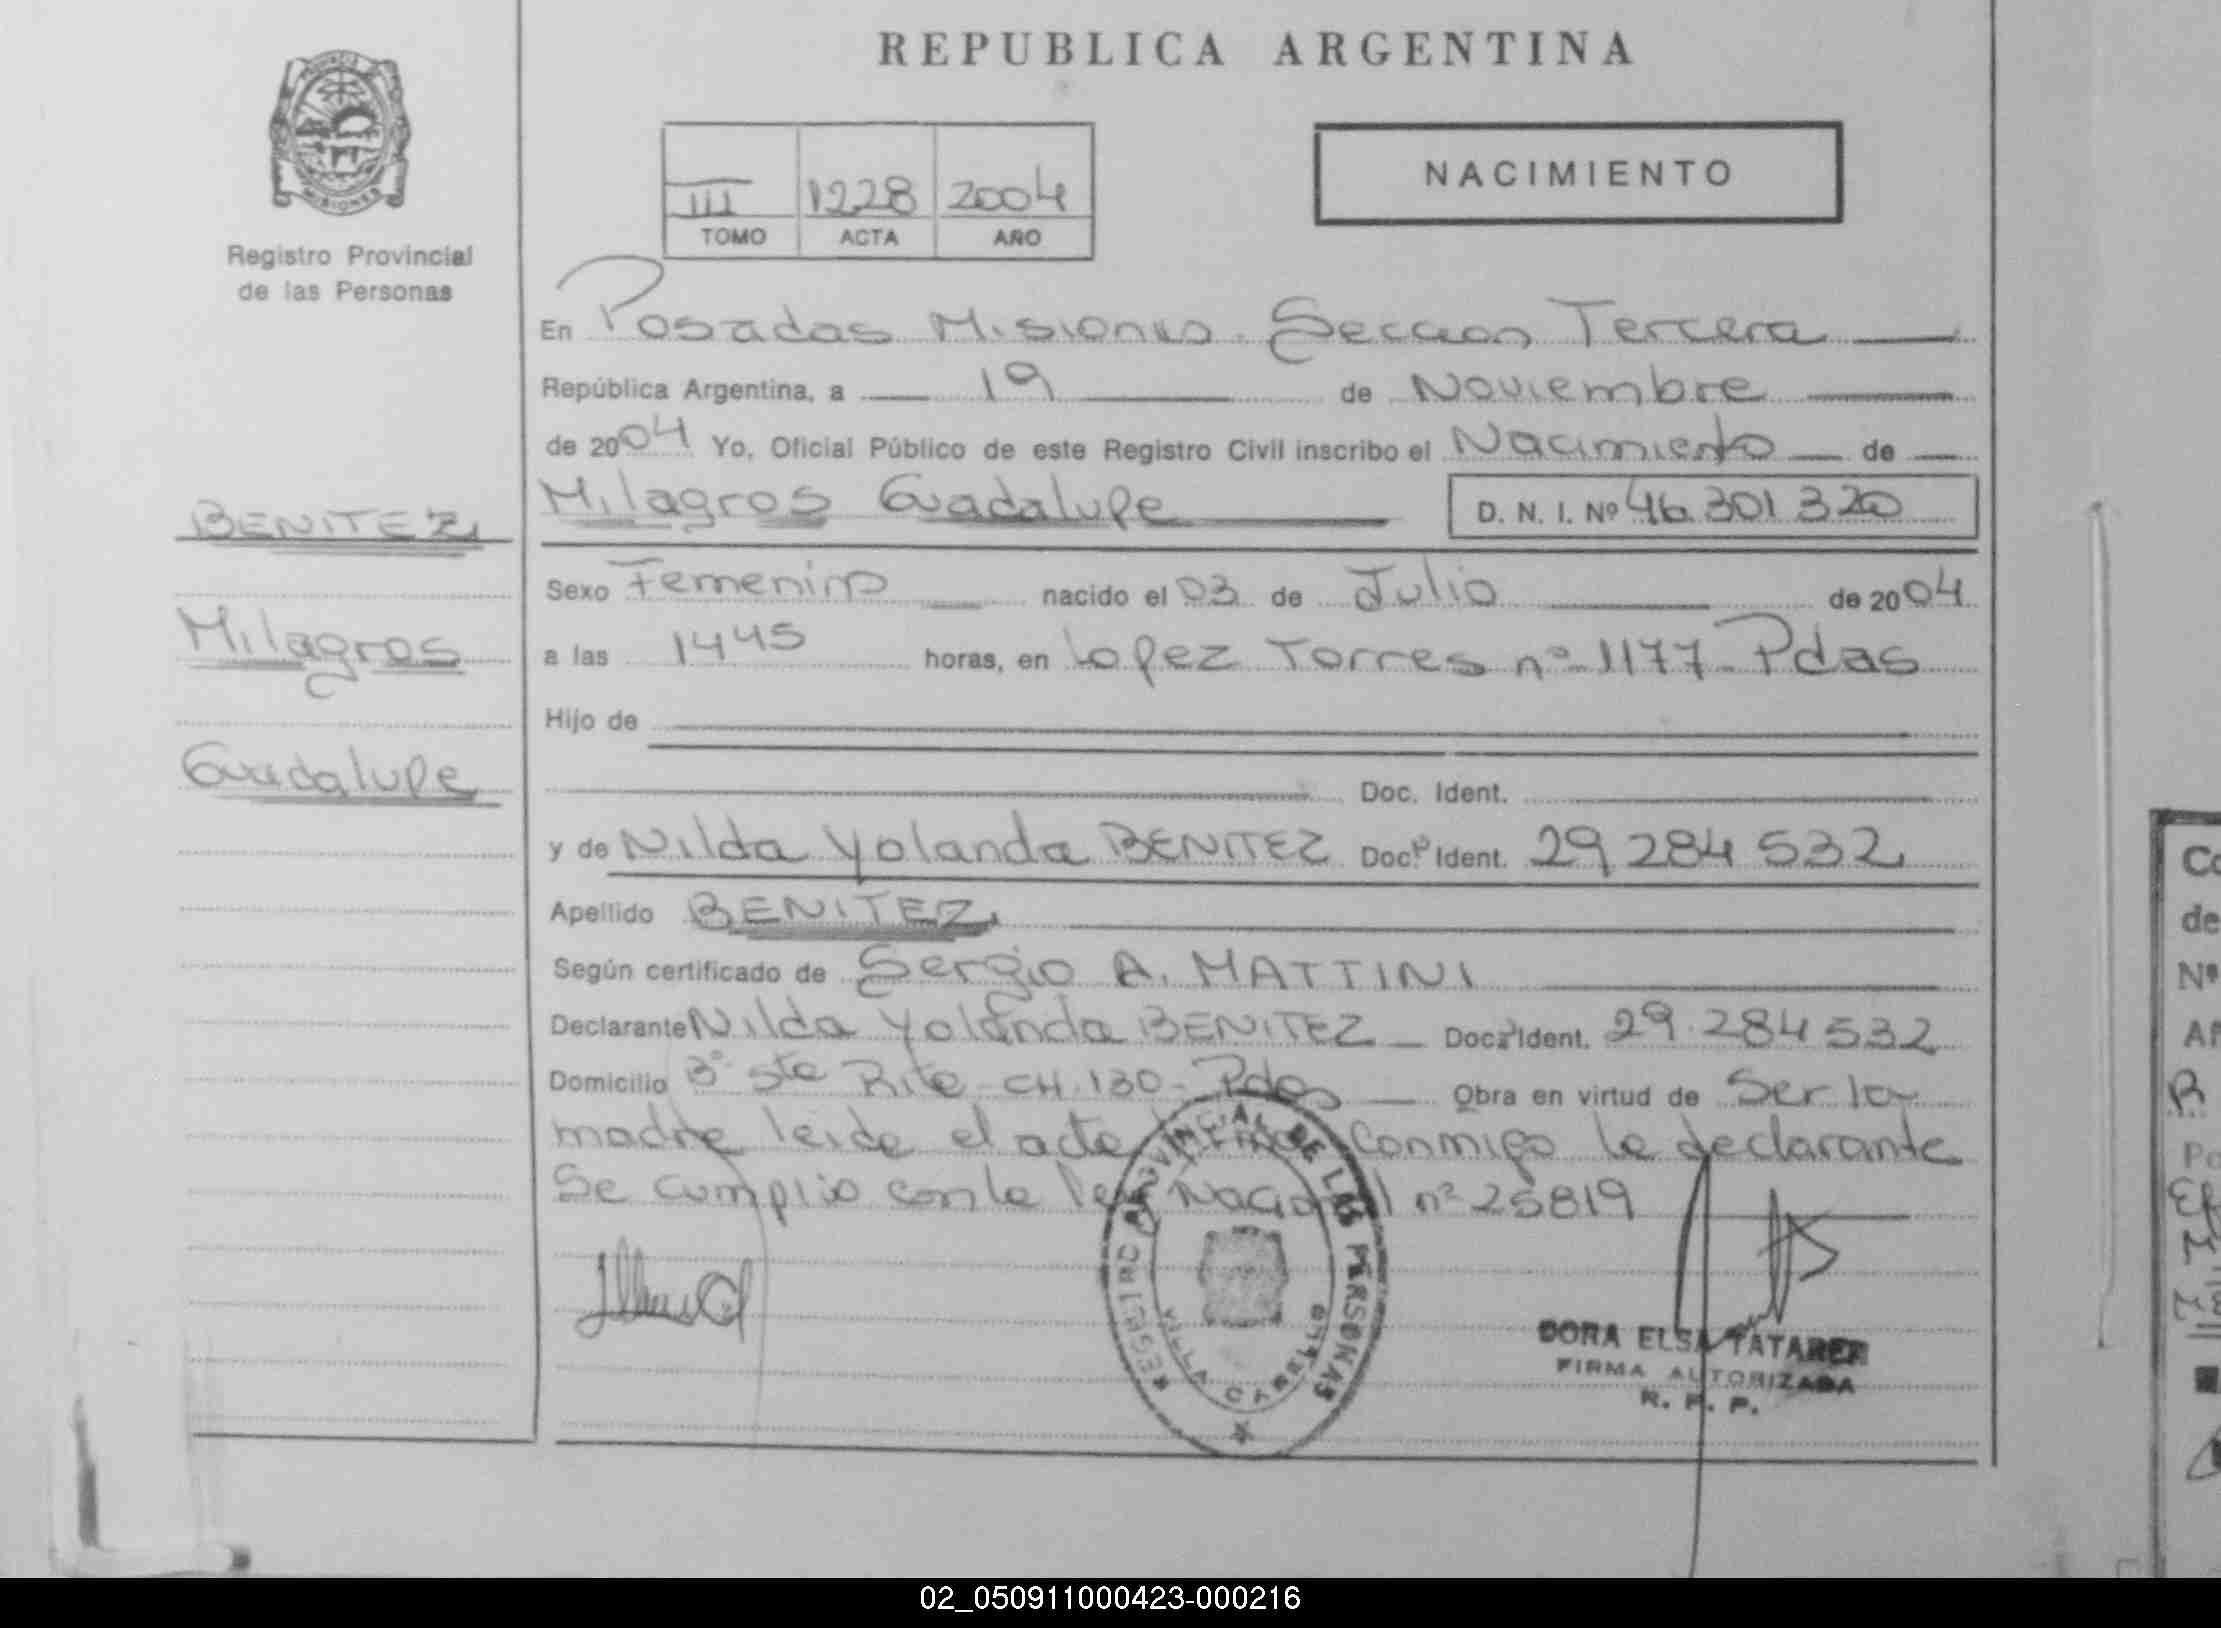 REPUBLICA ARGENTINA
PROVINCIA DE
MISIONES
Registro Provincial
de las Personas
III 1228 2004
TOMO ACTA AÑO
NACIMIENTO
En Posadas Misiones. Seccion Tercera
República Argentina, a 19 de Noviembre
de 2004 Yo, Oficial Público de este Registro Civil inscribo el Nacimiento de
Milagros Guadalupe D. N. I. Nº 46.301.320
BENITEZ
Milagros
Guadalupe
Sexo Femenino nacido el 03 de Julio de 2004
a las 1445 horas, en Lopez Torres nº 1177 Pdas
Hijo de
Doc. Ident.
y de Nilda Yolanda BENITEZ Doc. Ident. 29 284 532
Apellido BENITEZ
Según certificado de Sergio A. MATTINI
Declarante Nilda Yolanda BENITEZ Doc. Ident. 29.284532
Domicilio Bº Sta Rita CH.130 - Pdas Obra en virtud de Ser la
madre leida el acta firma conmigo la declarante
Se cumplio con la ley Nacional nº 25819
REGISTRO PROVINCIAL DE LAS PERSONAS
VILLA CABELLO
DORA ELSA
FIRMA AUTORIZADA
R. P. P.
Co
de
Nº
02_050911000423-000216